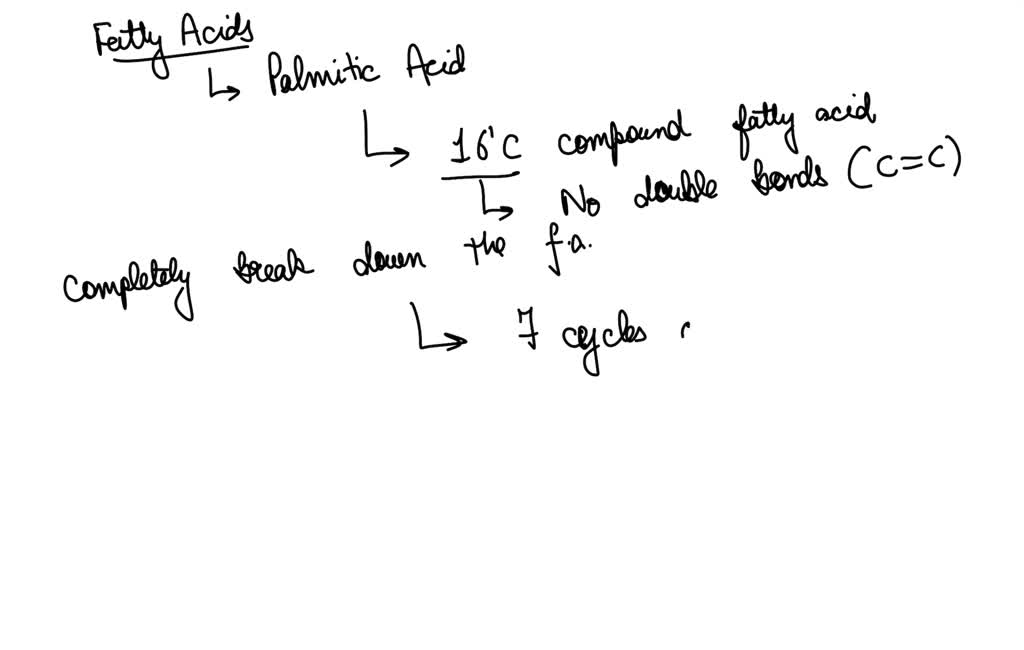 Fatty Acids
↳ Palmitic Acid
↳ 16'C compound fatty acid
↳ No double bonds (C=C)
Completely break down the f.a.
↳ 7 cycles